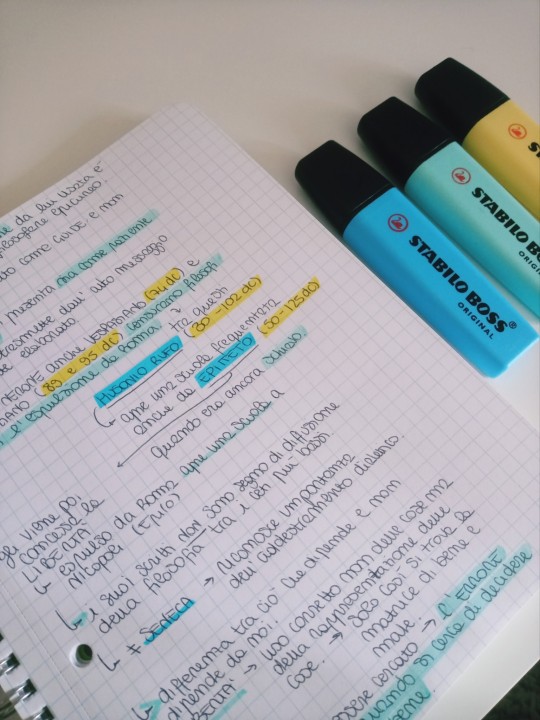 da lui vista e
filosofare epicureo,
come Cinte e non
mesenta ma come paziente
dall' alto messaggio
elaborato
NERONE anche VESPASIANO (71 dC) e
(89 e 95 dC) censurano filosofi
l'espulsione da Roma → tra questi
MUSONIO RUFO (30-102 dC)
↳ apre una scuola frequentata
anche da EPITTETO (50-125 dC)
quando era ancora schiavo.
gli viene poi
concessa la
LIBERTÀ
apre una scuola a
↳ espulso da Roma
Nicopoli (Epiro)
↳ i suoi scritti NON sono segno di diffusione
della filosofia tra i ceti più bassi
↳ ≠ SENECA → riconosce importanza
dell' addestramento dialettico.
↳ differenza tra ciò che dipende e non
dipende da noi.
→ uso corretto non delle cose ma
della rappresentazione delle
cose. → Solo così si trova la
matrice di bene e
male.
cercato → L'ERRORE
quando si cerca di decidere
bene.
STABILO BOSS
ORIGINAL
STABILO BOSS
ORIGINAL
STABILO